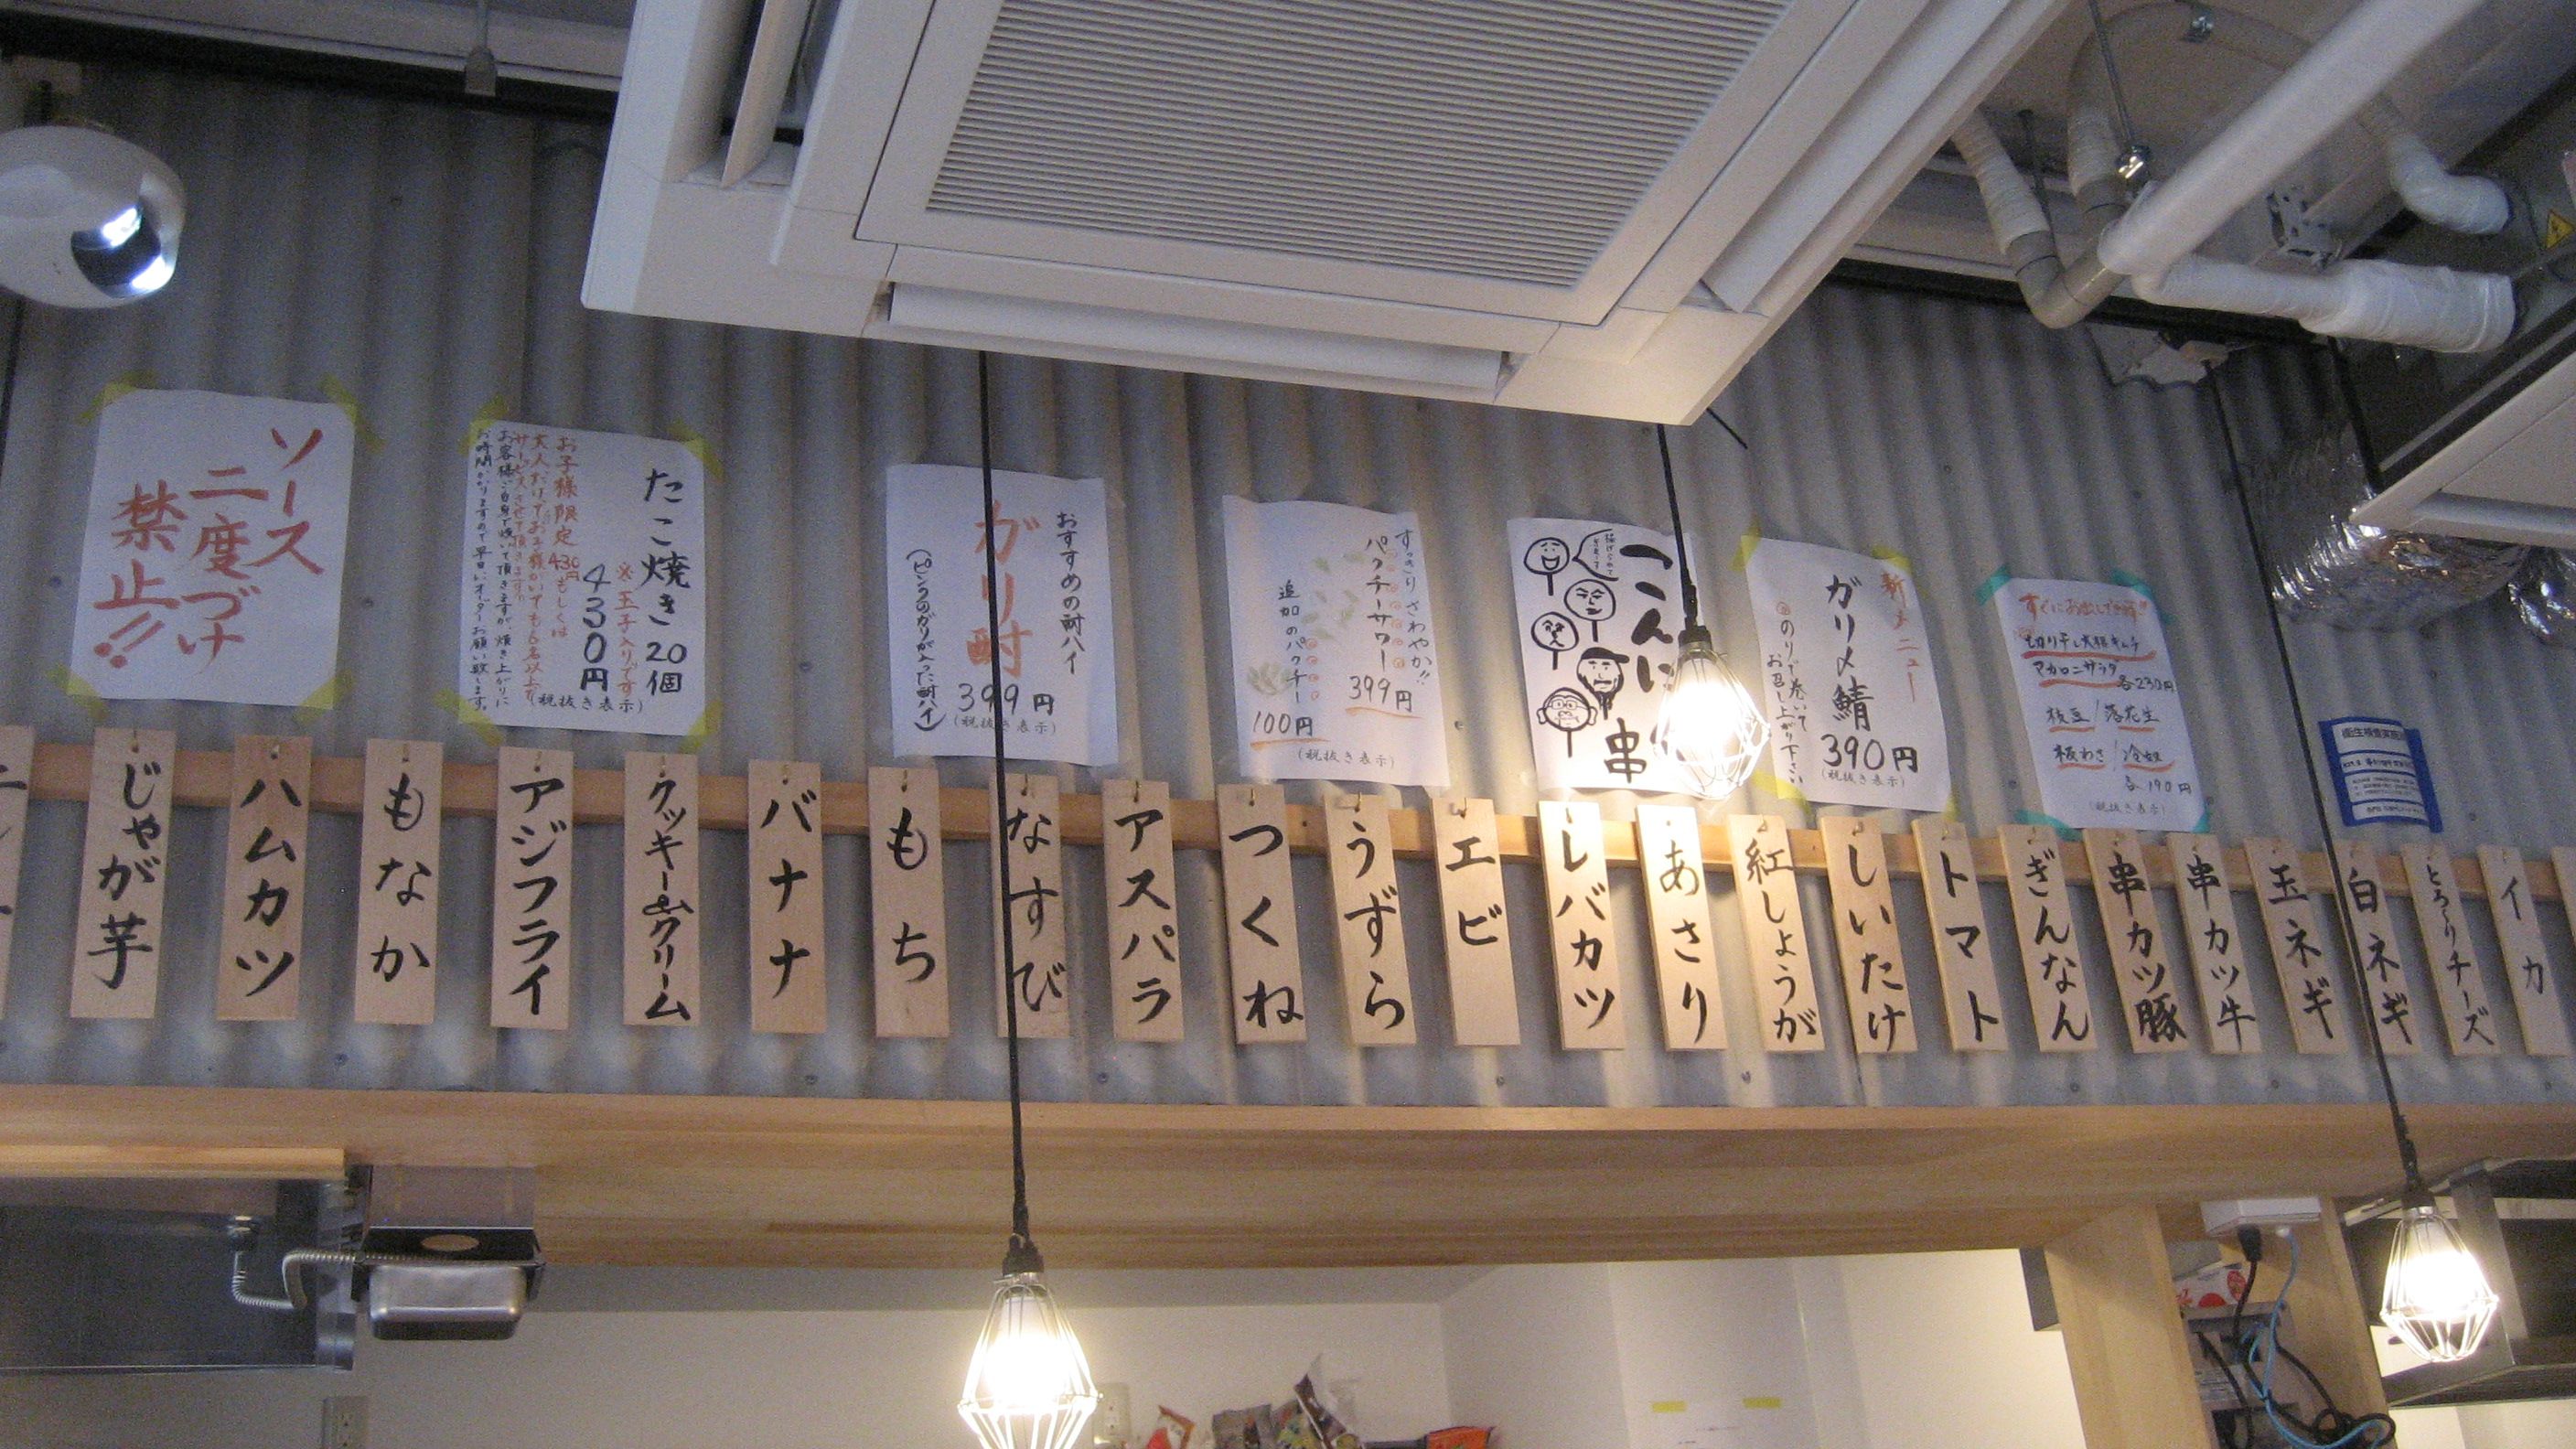 ソース
二度づけ
禁止!!
たこ焼き20個
※玉子入りです
430円
(税抜き表示)
お子様限定430円もしくは
お客様ご自身で焼いて頂きますが、焼き上がりに
お時間かかりますので早めにオーダーお願い致します。
おすすめの酎ハイ
ガリ酎
399円
(税抜き表示)
(ピンクのガリが入った酎ハイ)
すっきりさわやか!!
パクチーサワー
399円
追加のパクチー
100円
(税抜き表示)
こんに
串
新メニュー
ガリ〆鯖
390円
(税抜き表示)
のりで巻いて
お召し上がり下さい
すぐにお出しできます!!
切り干し大根キムチ
マカロニサラダ
各230円
枝豆/落花生
板わさ/冷奴
各190円
(税抜き表示)
じゃが芋
ハムカツ
もなか
アジフライ
クッキー&クリーム
バナナ
もち
なすび
アスパラ
つくね
うずら
エビ
レバカツ
あさり
紅しょうが
しいたけ
トマト
ぎんなん
串カツ豚
串カツ牛
玉ネギ
白ネギ
とろ〜りチーズ
イカ